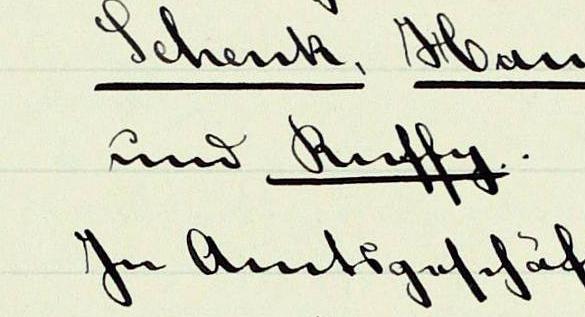 Schenk, Ham
und Ruffy.
In Amtsgeschäf